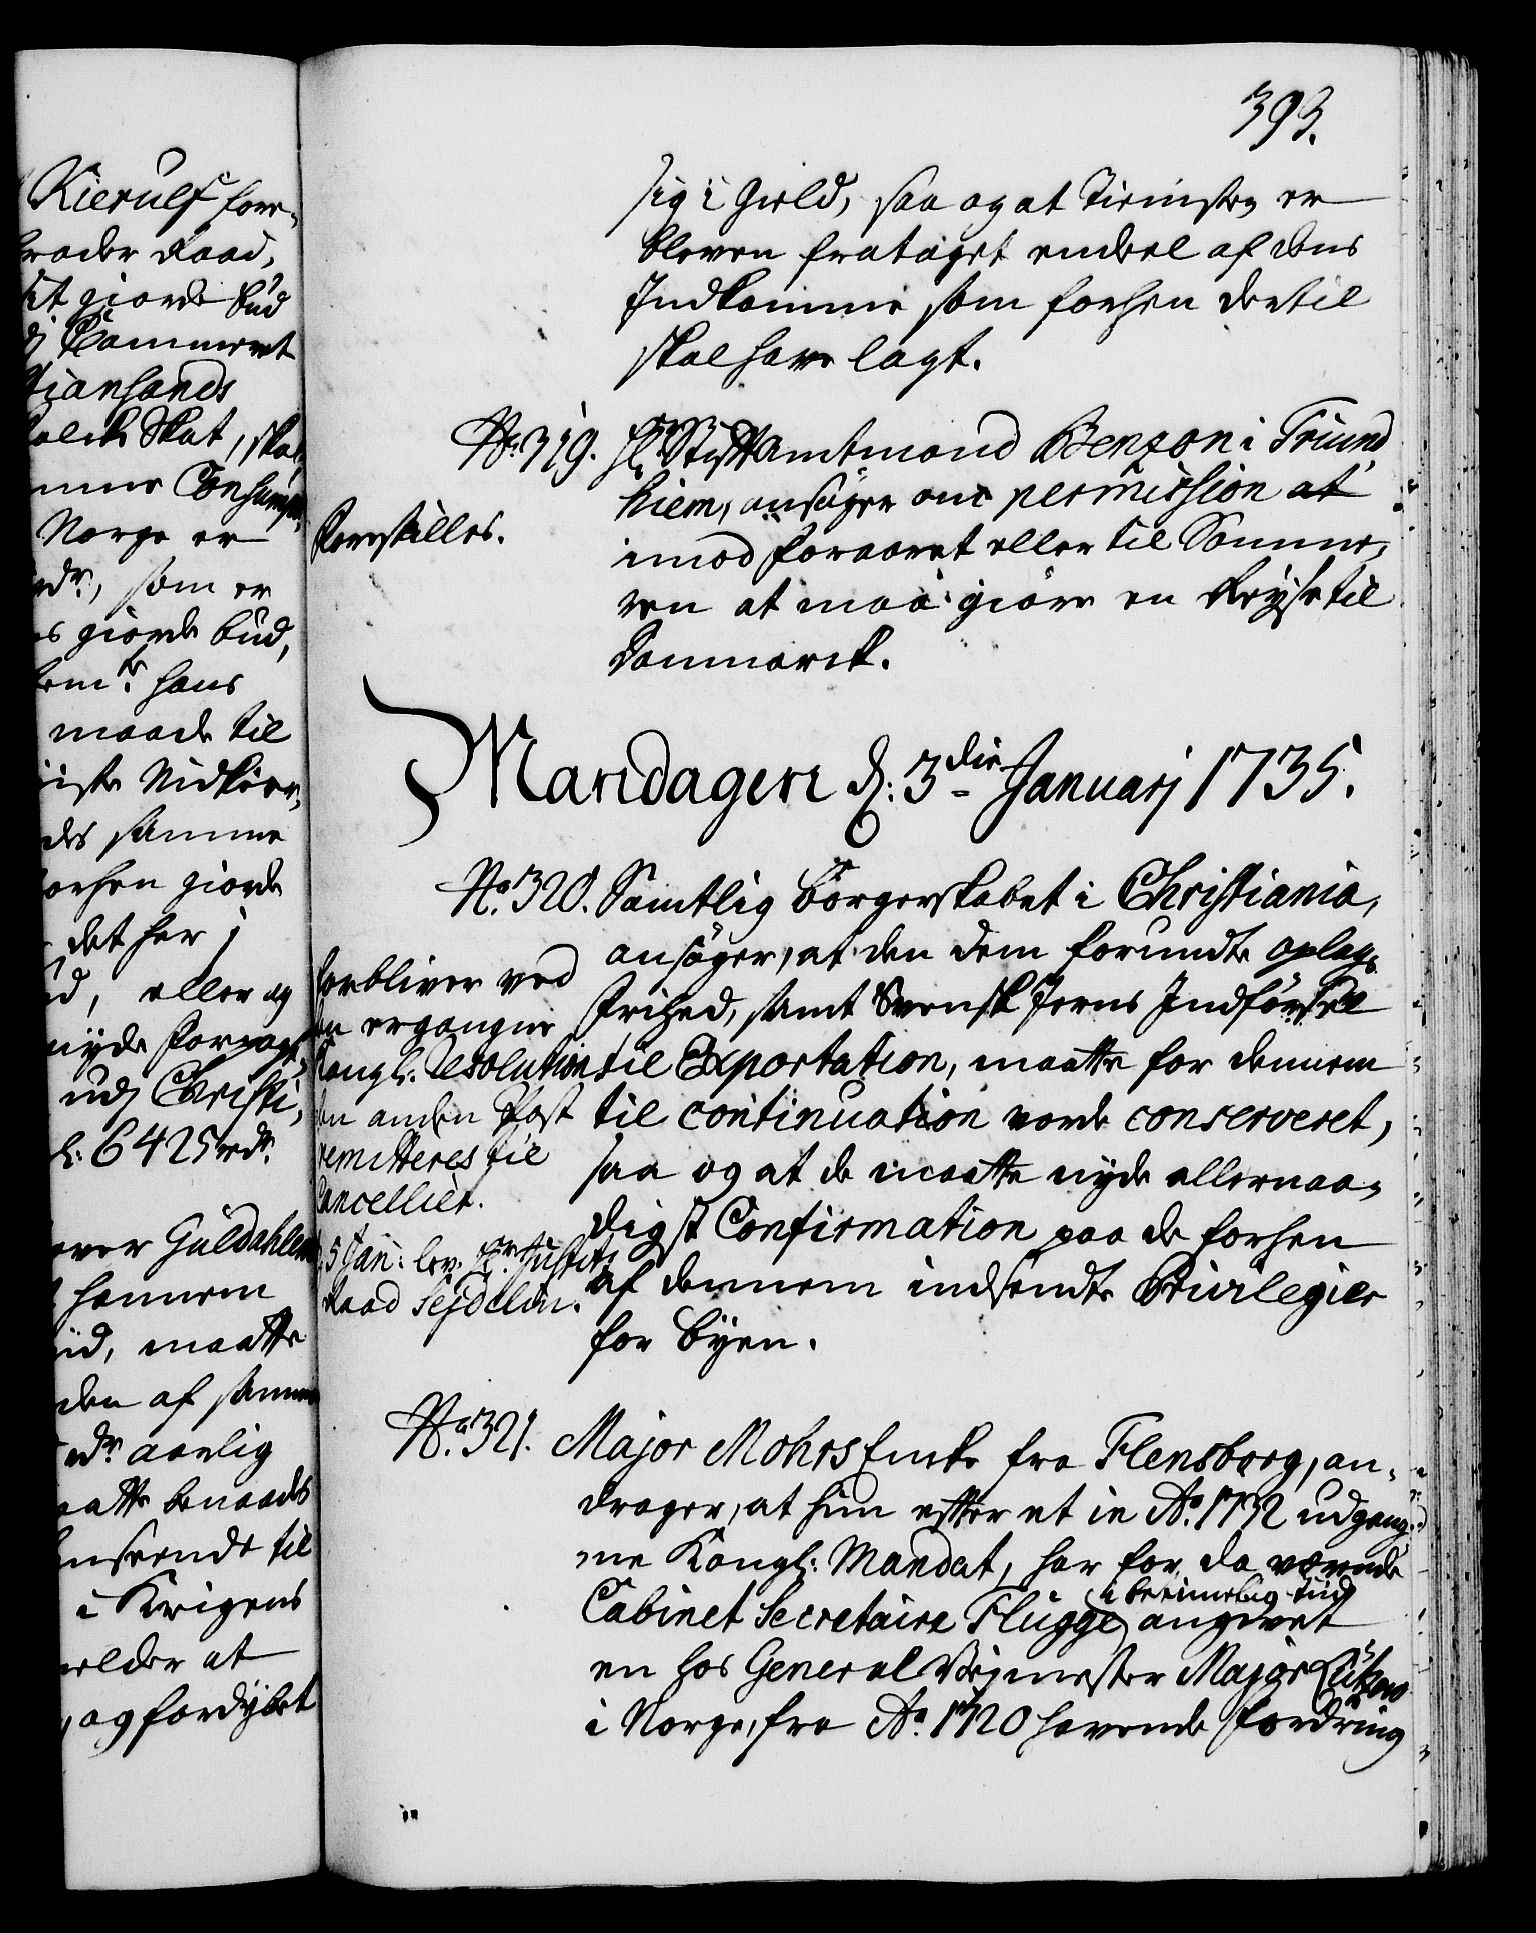 393.
sig i Gield, saa og at Tienisten er
bleven frataget endeel af dens
Indkomme som forhen dertil
skal have lagt.
No. 319. Hr. Stiftamtmand Benzon i Triund
hiem, ansøger om permission at
Forestilles.
imod Foraaret eller til Somme,
ren at maa giøre en Reyse til
Danmarck.
Mandagen d: 3die Januarj 1735.
No. 320. Samtlig Borgerskabet i Christiania,
ansøger, at den dem forundte oplags
Frihed, samt Svensk Jerns Indførsel
til Exportation, maatte for dennem
til continuation vorde conserveret,
saa og at de maatte nyde allernaa,
digst Confirmation paa de forhen
af dennem indsendte Privilegier
for Byen.
forbliver ved
den ergangne
Kongl: Resolution
den anden Post
remitteres til
Cancelliet.
d. 5 Jan: lev. Hr. Justits
Raad Sejdelin.
No. 321. Major Mohrs Encke fra Flensborg, an,
drager, at hun efter et in Ao. 1732 udgang,
ne Kongl: Mandat, har for da værende
Cabinet Secretaire Flügge i beqvemmelig tiid angivet
en hos General Vejmester Major Lützow
i Norge, fra Ao. 1720 havende Fordring
Kierulf fore,
erader Raad,
giorde bud
Kammeret
tiansands
Skat, skal
Consumption
Norge er
rdr., som er
giorde bud,
bemte. hans
maade til
Nidkier,
des samme
forhen giorde
det her i
eller og
nyde Forpagt
udj Christi,
6425 rdr.
over Guldahlen
hannem
tiid, maatte
den af samme
rdr. aarlig
maatte benaades
anseende til
i Krigens
melder at
og fordybet